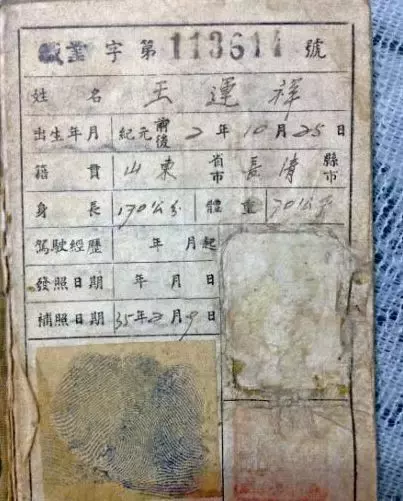 職業字第113614號
姓名 王運祥
出生年月 紀元前後2年10月25日
籍貫 山東省市長清縣市
身長 170公分 體重 70公斤
駕駛經歷 年月起
發照日期 年月日
補照日期 35年2月9日